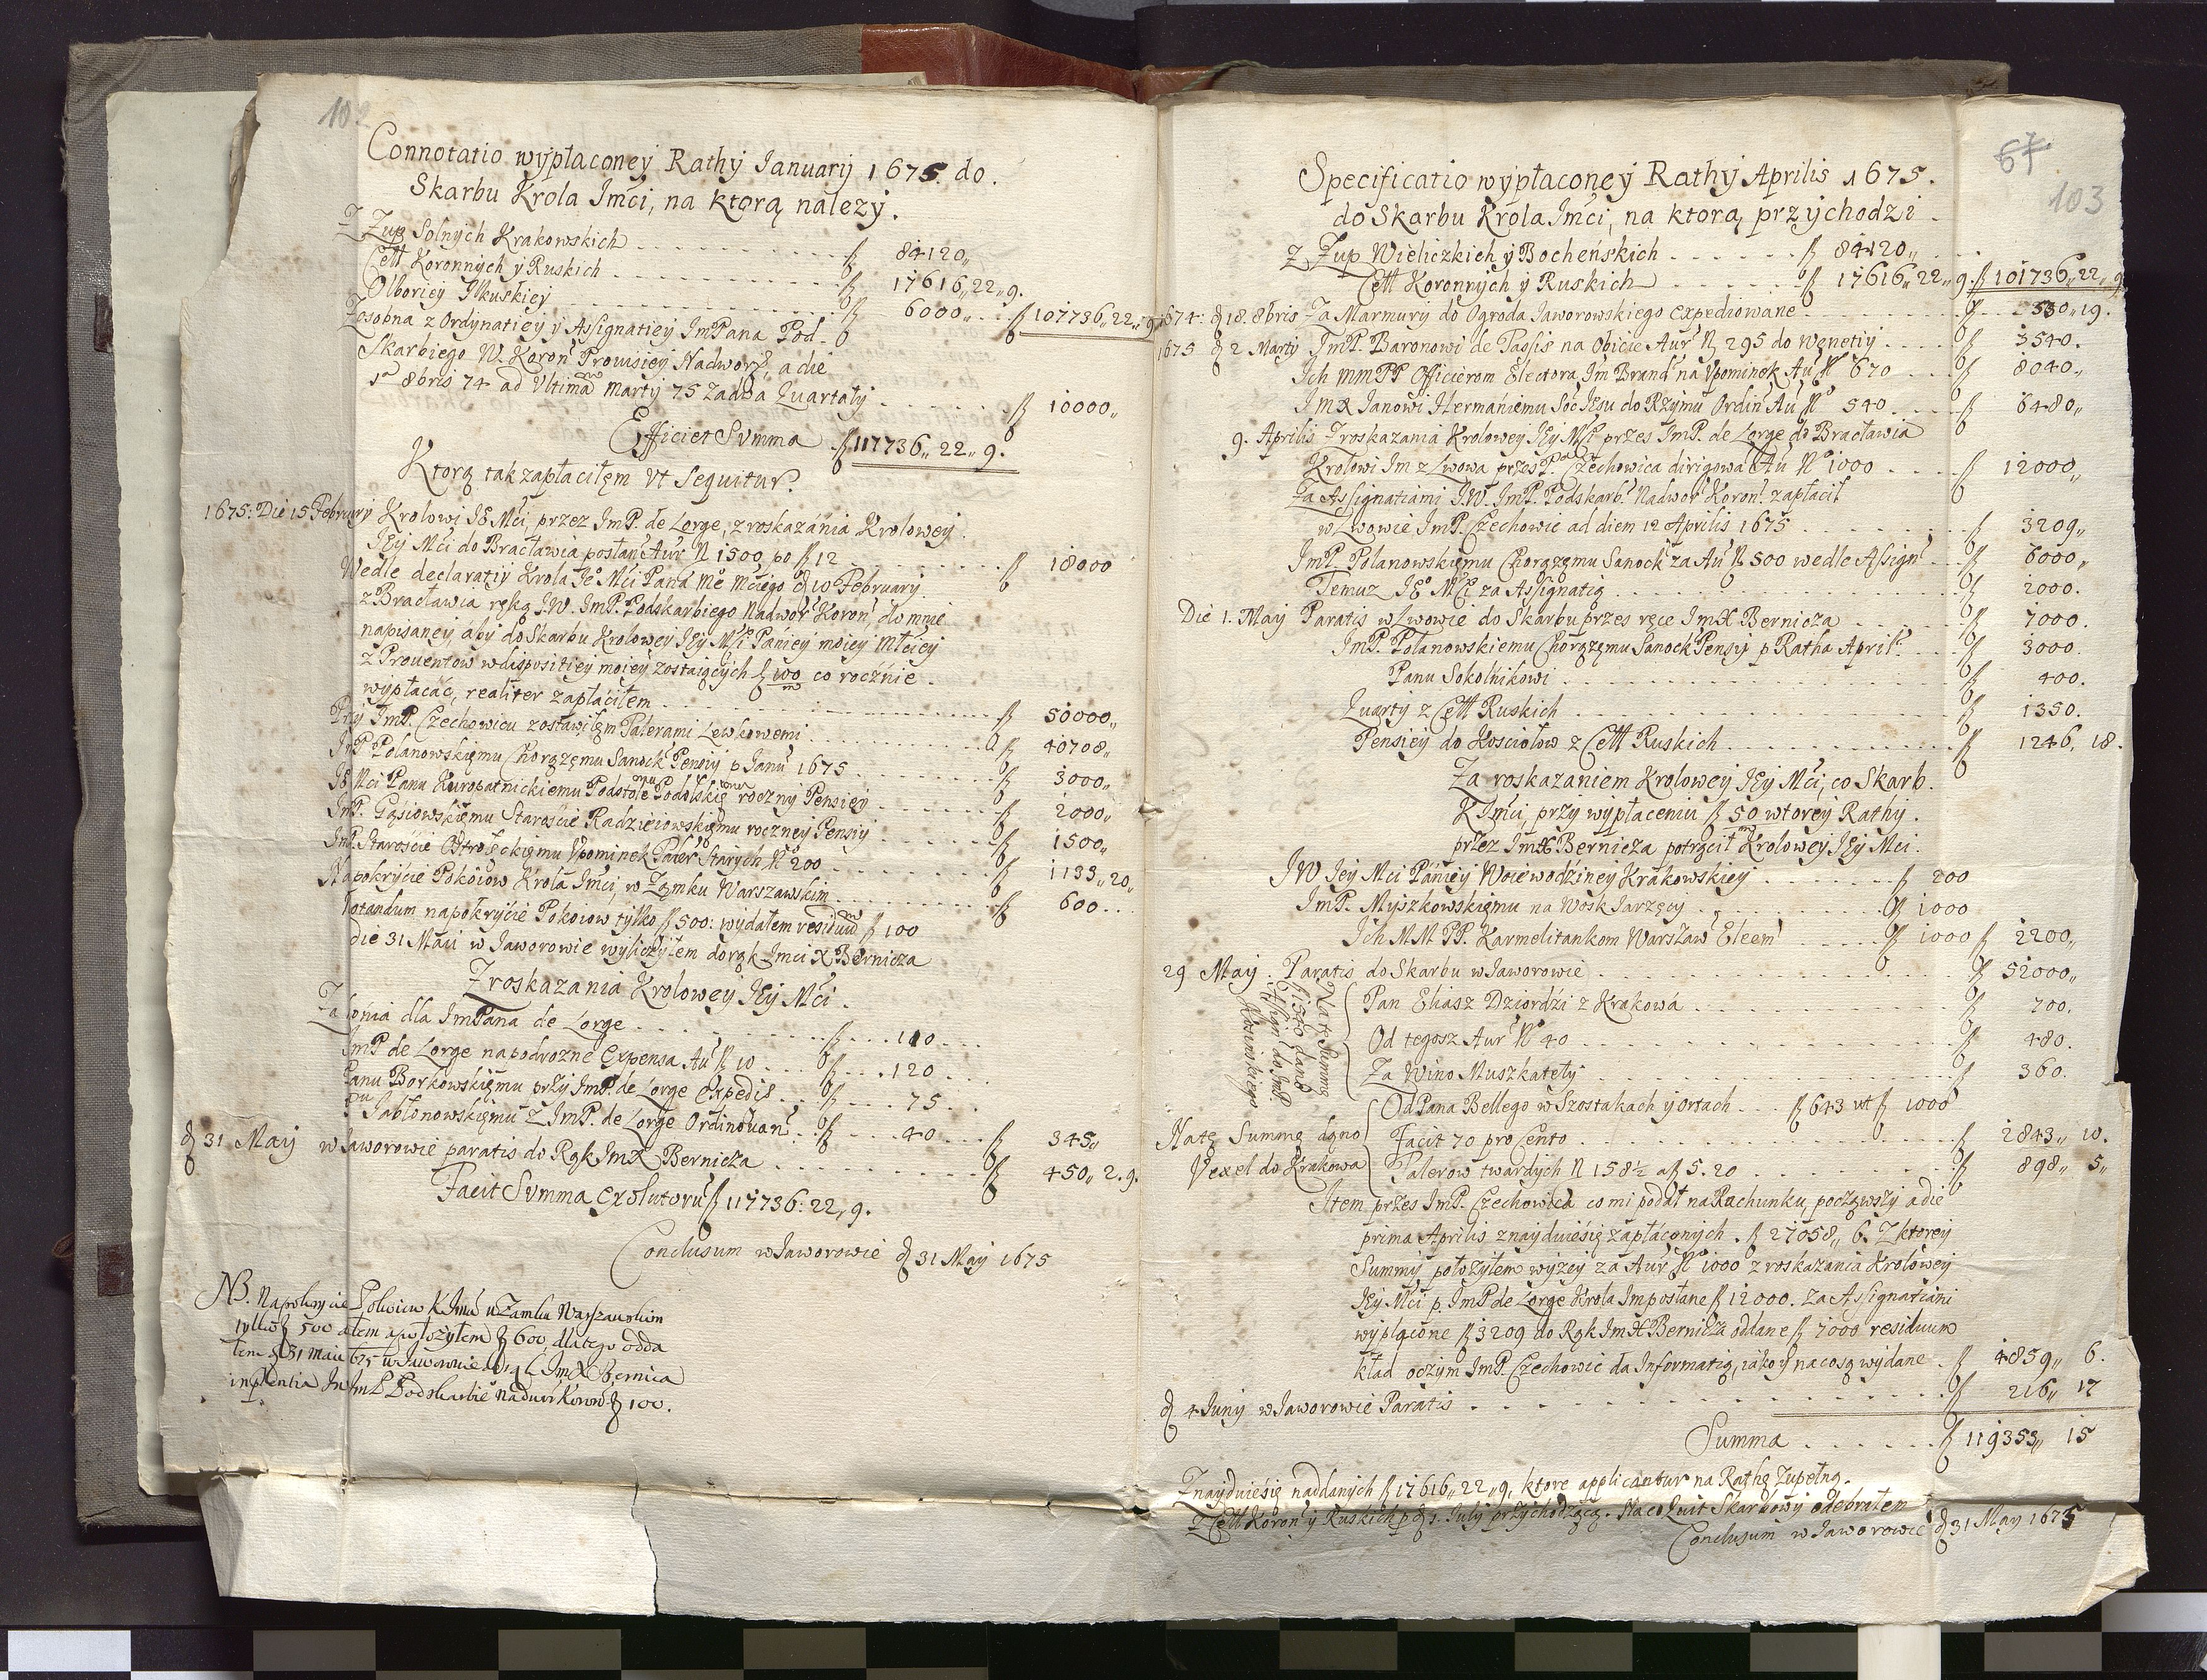 102
Connotatio wypłaconey Rathy Ianuarij 1675. do
Skarbu Krola Imci, na ktorą nalezy.
Z Zup Solnych Krakowskich . . . . ƒ 84120„
Cell Koronnych y Ruskich . . . . ƒ 17616„22„9.
Olboriey Ilkuskiey . . . . ƒ 6000„ . . ƒ 107736„22„9
Zosobna z Ordynatiey y Assignatiey ImPana Pod-
Skarbiego W. Koron Prouisiey Nadwor, a die
1a 8bris 74 ad Vltimam Martij 75 za dwa Quartały . . . . ƒ 10000„
Efficiet Summa ƒ 117736„22„9.
Ktorą tak zapłaciłęm Vt Sequitur.
1675. Die 15 Februarij Krolowi IE Mci, przez ImP. de Lorge, z roskazánia Krolowey
IEy Mci do Bracławia posłan Aur N 1500, po ƒ 12 . . . . ƒ 18000
Wedle declaratiy Krola Ie Mci Paná me Mciego d 10 February
z Bracławia ręką I.W. ImP. Podskarbiego Nadwor Koron, do mnie
napisaney, aby do Skarbu Krolowey IEy Msci Paniey moiey Młciey
z Prouentow w dispositiey moiey zostaiących ƒ 100/m co rocźnie
wypłacać, realiter zapłáciłem . . . . ƒ 50000„
Przy ImP. Czechowicu zostáwiłęm Talerami Lewkowemi . . . . ƒ 40708„
ImP Polanowskięmu Chorązęmu Sanock Pensiy p Ianu 1675 . . . . ƒ 3000„
IE Mci Panu Kuropatnickiemu Podstole Podolskię roczny Pensiey . . . . ƒ 2000„
ImP. Gąsiowskięmu Staroście Radzieiowskięmu roczney Pensiy . . . . ƒ 1500„
ImP. Staroście Vpominek Taler Starych N 200 . . . . ƒ 1133„20„
Na pokrycie Pokoiow Krola Imci, w Zęmku Warszawskim . . . . ƒ 600 . .
Notandum na pokrycie Pokoiow tylko ƒ 500: wydałem residuum ƒ 100
die 31 Maii w Jaworowie wyliczyłem do rąk Imci X Bernicza
Z roskazania Krolowey IEy Mci.
Za konia dla ImPana de Lorge . . . . ƒ . . 110 . .
ImP de Lorge na podrozne Expensa Au N 10 . . . ƒ . . 120 . .
Panu Borkowskięmu przy ImP. de Lorge Expedis . . ƒ . . 75 . .
Pu Iabłonowskięmu z ImP. de Lorge Ordinouan . . ƒ . . 40 . . ƒ 345„
d 31 Maij w Jaworowie paratis do Rąk ImX Bernicza . . . . ƒ 450„2.9.
Facit Summa Exolutoru ƒ 117736: 22, 9.
Conclusum w Jaworowie d 31 Maij 1675
NB. Na pokrycie Pokoiow K Imci w Zamku Warszawskim
tylko ƒ 500 ałem a połozyłem ƒ 600, dla tego odda
łem d 31 maii 675 w Jaworowie do rąk ImX Bernica
in pntia Jw ImP Podskarbie Nadwor Koron ƒ 100.
67
103
Specificatio wypłaconey Rathy Aprilis 1675.
do Skarbu Krola Imci, na ktorą przychodzi
Z Zup Wieliczkich y Bocheńskich . . . . ƒ 84120„ . .
Cell Koronnych y Ruskich . . . . ƒ 17616„22„9. ƒ 101736„22„9
1674: d 18. 8bris Za Marmury do Ogroda Jaworowskiego expediowane . . . . ƒ 530„19.
1675 d 2 Martij ImP. Baronowi de Tassis na Obicie Aur N 295 do Wenetiy . . . . ƒ 3540.
Ich MmPP Officierom Electora Im Brand na Vpominek Au N 670 . . . ƒ 8040„
ImX Ianowi Hermaniemu Soc Iesu do Rzymu Ordin Au No 540 . . . ƒ 6480„
9. Aprilis Z roskazania Krolowey IEy Msci przes ImP. de Lorge do Bracławia
Krolowi Im z Lwowa przes P. Czechowica dirigowa Au No 1000 . . . . ƒ 12000„
Za Assignatiami I.W. ImP. Podskarb. Nadwor Koron. zapłacił
w Lwowie ImP. Czechowic ad diem 12 Aprilis 1675 . . . . ƒ 3209„
ImP. Polanowskięmu Chorązęmu Sanock za Au N 500 wedle Assign . . . ƒ 6000„
Temuz IE Mści za Assignatią . . . . ƒ 2000.
Die 1. Maij Paratis w Lwowie do Skarbu przes ręce ImX Bernicza . . . . ƒ 7000.
ImP. Polanowskiemu Chorązęmu Sanock Pensiy p Ratha April. . . . ƒ 3000.
Panu Sokolnikowi . . . . ƒ 400.
Quarty z Cell Ruskich . . . . ƒ 1350.
Pensiey do Kosciołow z Cell Ruskich . . . . ƒ 1246, 18.
Za roskazaniem Krolowey IEy Mci, co Skarb.
K Imci, przy wypłaceniu ƒ 50/m wtorey Rathy.
przez ImX Bernicza potrącił Krolowey IEy Mci.
IW Iey Mci Pániey Woiewodziney Krakowskiey . . . . ƒ 200
ImP. Myszkowskięmu na Wosk Jarzęcy . . . . ƒ 1000
Ich MM PP. Karmelitankom Warszaw Eleem . . . . ƒ 1000 ƒ 2200„
29 Maij. Paratis do Skarbu w Jaworowie . . . . ƒ 52000„
Na tę Summę
ƒ 1540 dano
Assign do ImP.
Kosinskiego
Pan Eliasz Dziordźi z Krakowa . . . . ƒ 700.
Od tegosz Aur No 40 . . . . ƒ 480.
Za Wino Muszkatełę . . . . ƒ 360.
Od Pana Bellego w Szostakach y Ortach . . . ƒ 643 vt ƒ 1000
Na tę Summę dąno Facit 70 pro Cento . . . . ƒ 2843„ 10.
Vexel do Krakowa Talerow twardych N 158½ a ƒ 5. 20 . . . . ƒ 898„ 5„
Item przes ImP. Czechowica co mi podał na Rachunku, począwszy a die
prima Aprilis znayduiésię zapłáconych. ƒ 27058„ 6. Z ktorey
Summy połozyłem wyzey za Aur No 1000 z roskazánia Krolowey
IEy Mci p. ImP de Lorge Krola Im posłane ƒ 12000. Za Assignatiami
wypłącone ƒ 3209 do Rąk ImX Bernicza oddane ƒ 7000 residuum
kład oczym ImP. Czechowic da Informatią, iako y na co są wydane . ƒ 4859„ 6.
d 4 Iunij w Jaworowie Paratis . . . . ƒ 216„ 17
Summa . . . . ƒ 119353„ 15
Znayduiesię naddanych ƒ 17616„22„9, ktore applicantur na Rathę Zupełną.
Z Cell Koron y Ruskich p d 1. Iulij przychodzącą. Na co Quit Skarbowy odebrałem
Conclusum w Jaworowie d 31 Maij 1675